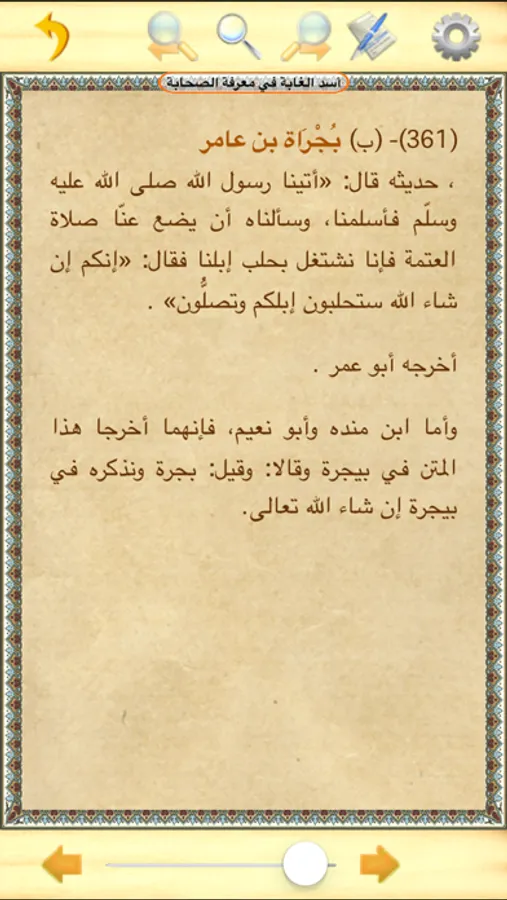 أسد الغابة في معرفة الصحابة
(361)- (ب) بُجْرَاة بن عامر
، حديثه قال: «أتينا رسول الله صلى الله عليه
وسلّم فأسلمنا، وسألناه أن يضع عنّا صلاة
العتمة فإنا نشتغل بحلب إبلنا فقال: «إنكم إن
شاء الله ستحلبون إبلكم وتصلُّون» .
أخرجه أبو عمر .
وأما ابن منده وأبو نعيم، فإنهما أخرجا هذا
المتن في بيجرة وقالا: وقيل: بجرة ونذكره في
بيجرة إن شاء الله تعالى.